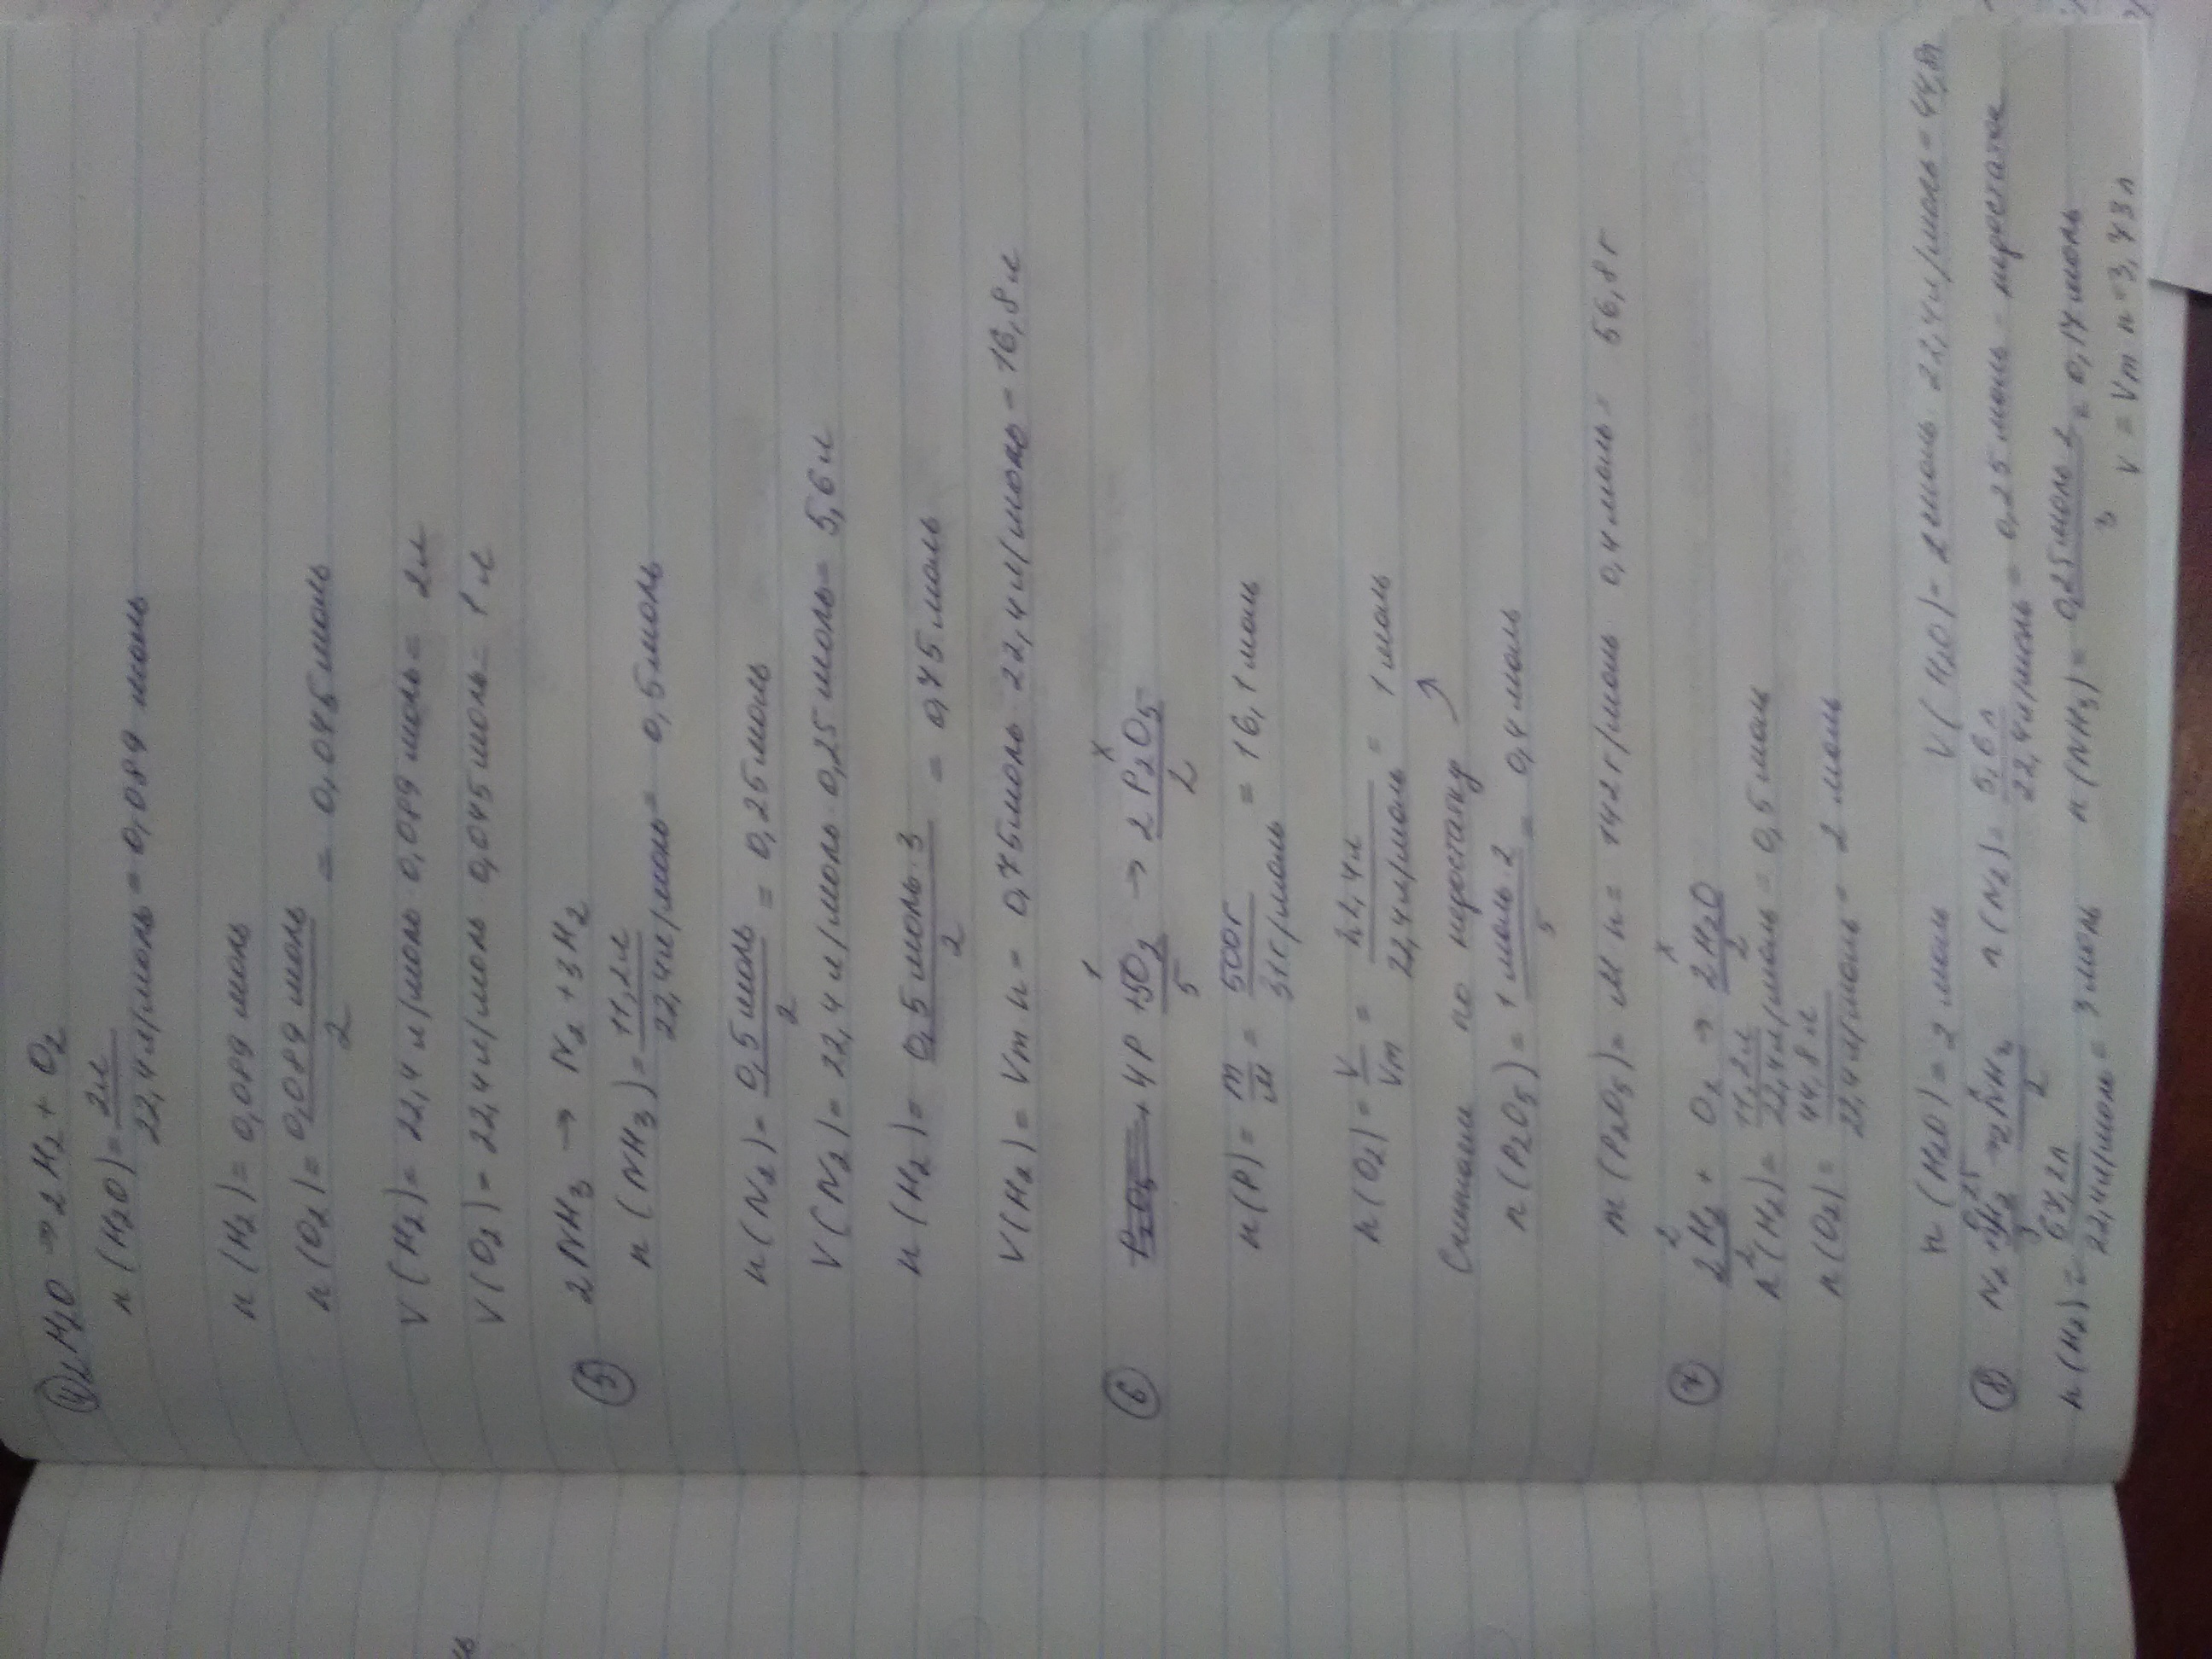 ④ 2H2O → 2H2 + O2
n(H2O) = 2л / 22,4л/моль = 0,089 моль
n(H2) = 0,089 моль
n(O2) = 0,089 моль / 2 = 0,045 моль
V(H2) = 22,4 л/моль · 0,089 моль = 2л
V(O2) = 22,4 л/моль · 0,045 моль = 1л
⑤ 2NH3 → N2 + 3H2
n(NH3) = 11,2л / 22,4л/моль = 0,5 моль
n(N2) = 0,5 моль / 2 = 0,25 моль
V(N2) = 22,4 л/моль · 0,25 моль = 5,6 л
n(H2) = 0,5 моль · 3 / 2 = 0,75 моль
V(H2) = Vm n = 0,75 моль · 22,4 л/моль = 16,8 л
1 x
⑥ 4P + 5O2 → 2P2O5
5 2
n(P) = m / M = 500г / 31г/моль = 16,1 моль
n(O2) = V / Vm = 22,4л / 22,4л/моль = 1 моль
Считаем по недостатку ↗
n(P2O5) = 1 моль · 2 / 5 = 0,4 моль
m(P2O5) = M n = 142 г/моль · 0,4 моль = 56,8 г
2 x
⑦ 2H2 + O2 → 2H2O
2 2
n(H2) = 11,2л / 22,4л/моль = 0,5 моль
n(O2) = 44,8 л / 22,4л/моль = 2 моль
n(H2O) = 2 моль V(H2O) = 2 моль · 22,4л/моль = 44,8л
0,25 x
⑧ N2 + 3H2 → 2NH3 n(N2) = 5,6л / 22,4л/моль = 0,25 моль -
3 2
n(H2) = 67,2л / 22,4л/моль = 3 моль n(NH3) = 0,25 моль · 2 / 3 = 0,17 моль
V = Vm n = 3,73 л